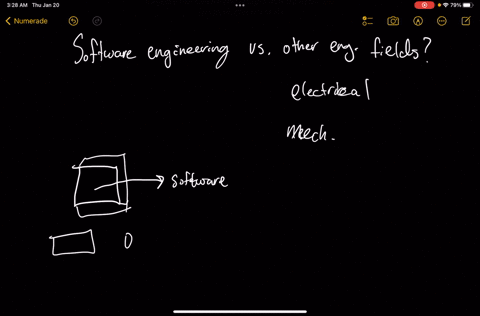 3:28 AM Thu Jan 20
79%
Numerade
Software engineering vs. other eng. fields?
electrical
Mech.
Software